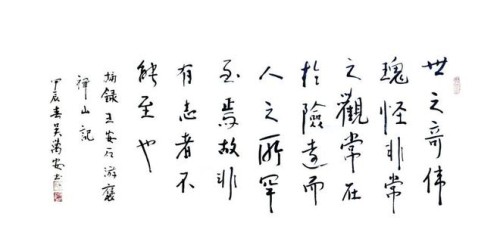 世之奇伟
瑰怪非常
之觀常在
於險遠而
人之所罕
至焉故非
有志者不
能至也
摘録王安石游褒
禅山記
甲辰春吴萬安书